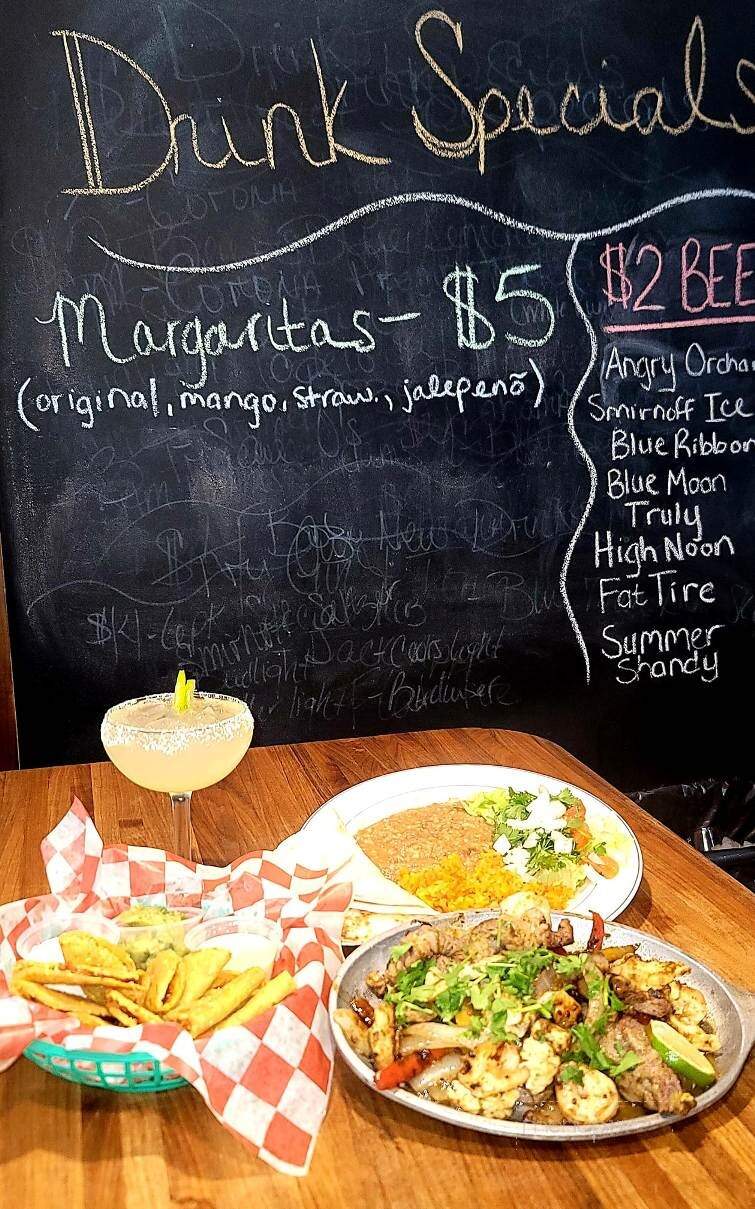 Drink Specials
Margaritas - $5
(original, mango, straw., jalepenõ)
$2 BEE
Angry Orcha
Smirnoff Ice
Blue Ribbon
Blue Moon
Truly
High Noon
Fat Tire
Summer
Shandy